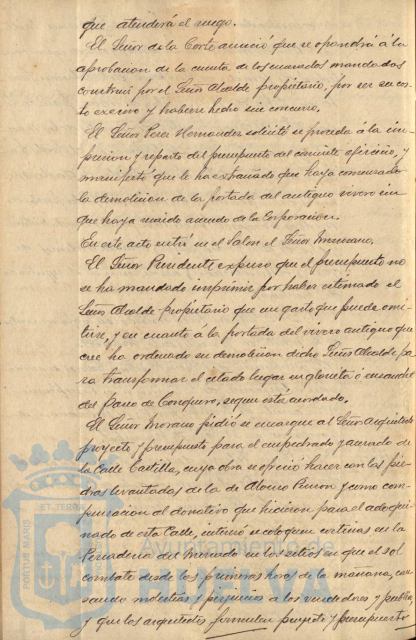 que atenderá el ruego.
El Señor de la Corte anunció que se opondrá á la
aprobacion de la cuenta de los cuarados mandados
construir por el Señor Alcalde propietario, por ser su cos-
to excesivo y haberse hecho sin concurso.
El Señor Perez Hernandez solicitó se proceda á la im-
presion y reparto del presupuesto del corriente ejercicio, y
manifestó que le ha extrañado que haya comenzado
la demolicion de la portada del antiguo vivero sin
que haya recaido acuerdo de la Corporacion.
En este acto entró en el Salon el Señor
El Señor Presidente expuso que el presupuesto no
se ha mandado imprimir por haber estimado el
Señor Alcalde propietario que es gasto que puede omi-
tirse, y en cuanto á la portada del vivero antiguo que
cree ha ordenado su demolicion dicho Señor Alcalde pa-
ra transformar el citado lugar en glorieta ó ensanche
del Paseo de Conquero, segun está acordado.
El Señor Morano pidió se encargue al Señor Arquitecto
proyecto y presupuesto para el empedrado y acerado de
la Calle Castilla, cuya obra se ofreció hacer con las pie-
dras levantadas de la de Alonso Pinzon y como com-
pensacion al donativo que hicieron para el adoqui-
nado de esta Calle, interesó se coloquen cortinas en la
Pescaderia del Mercado en los sitios en que el sol
combate desde las primeras horas de la mañana, cau-
sando molestias y perjuicios á los vendedores y publico,
y que los arquitectos formulen proyecto y presupuesto
PORTUS MARIS
ET TERRÆ